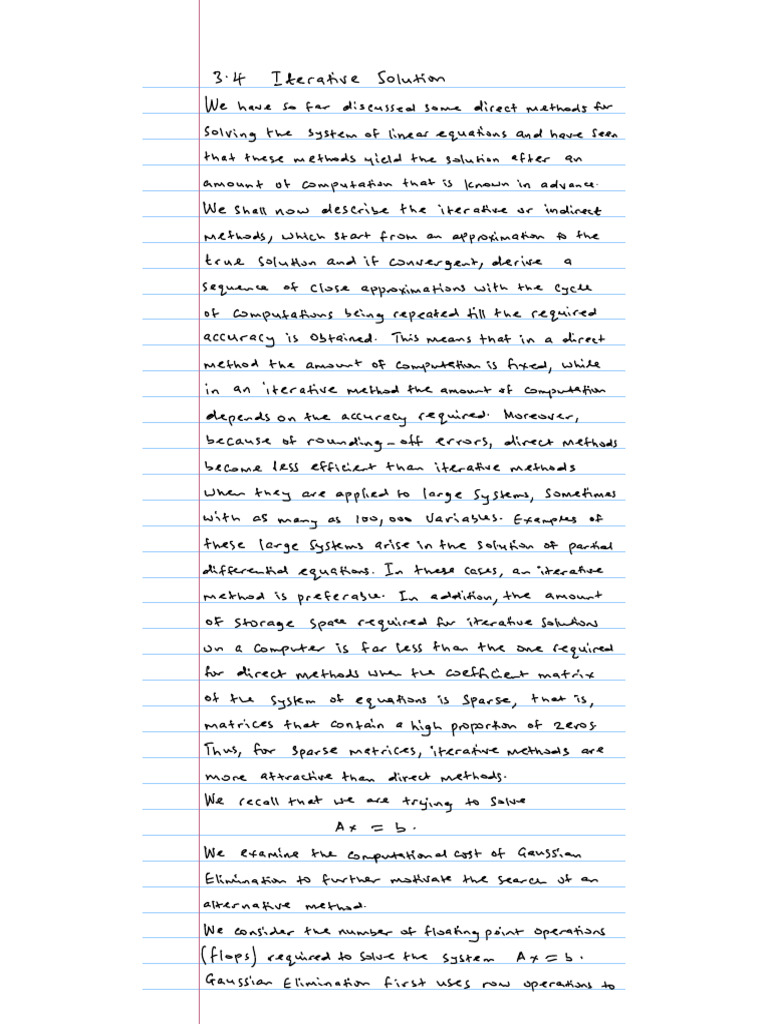 3.4 Iterative Solution
We have so far discussed some direct methods for
solving the system of linear equations and have seen
that these methods yield the solution after an
amount of computation that is known in advance.
We shall now describe the iterative or indirect
methods, which start from an approximation to the
true solution and if convergent, derive a
sequence of close approximations with the cycle
of computations being repeated till the required
accuracy is obtained. This means that in a direct
method the amount of computation is fixed, while
in an iterative method the amount of computation
depends on the accuracy required. Moreover,
because of rounding-off errors, direct methods
become less efficient than iterative methods
when they are applied to large systems, sometimes
with as many as 100,000 variables. Examples of
these large systems arise in the solution of partial
differential equations. In these cases, an iterative
method is preferable. In addition, the amount
of storage space required for iterative solutions
on a computer is far less than the one required
for direct methods when the coefficient matrix
of the system of equations is sparse, that is,
matrices that contain a high proportion of zeros.
Thus, for sparse matrices, iterative methods are
more attractive than direct methods.
We recall that we are trying to solve
Ax = b.
We examine the computational cost of Gaussian
Elimination to further motivate the search of an
alternative method.
We consider the number of floating point operations
(flops) required to solve the system Ax = b.
Gaussian Elimination first uses row operations to